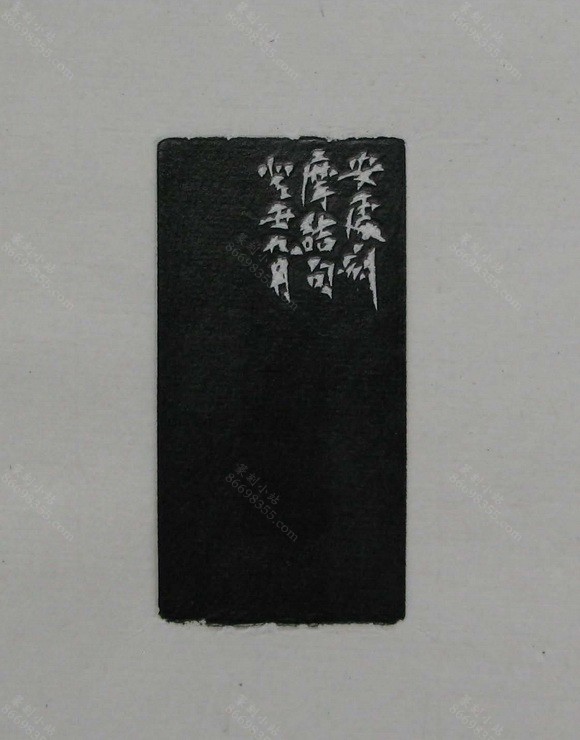 安刻
摩詰句
癸丑九月
篆刻小站
86698355.com